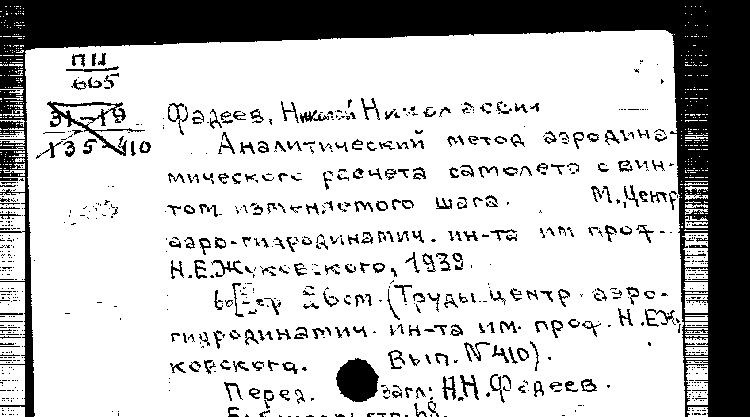 ПII
665
31-19
135-410
Фадеев, Николай Николаевич
Аналитический метод аэродина-
мического расчета самолета с вин-
том изменяемого шага. М., Центр
аэро-гидродинамич. ин-та им проф.
Н.Е.Жуковского, 1939.
26 cm. (Труды центр. аэро-
гидродинамич. ин-та им. проф. Н.ЕЖ
ковского. Вып. N 410).
Перед. загл: Н.Н. Фадеев.
стр. 68.